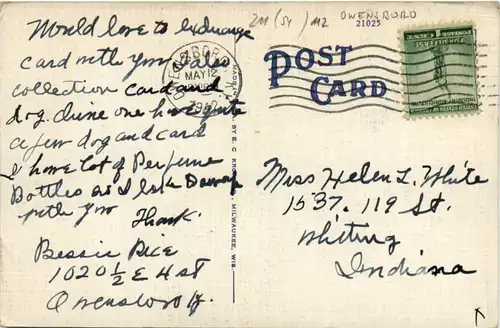 Would love to exchange
card with you. I also
collection card and
dog. Mine one have quite
a few dog and card
I have lot of Perfume
Bottles as I
with you
Thank.
Bessie
1020 1/2 E 4 st
Owensboro Ky.
201 (54) M2 OWENSBORO
21025
OWENSBORO
MAY 12
POST
CARD
BY E. C. KROPP CO., MILWAUKEE, WIS.
FOR DEFENSE
Miss Helen L. White
1537. 119 St.
Whiting
Indiana